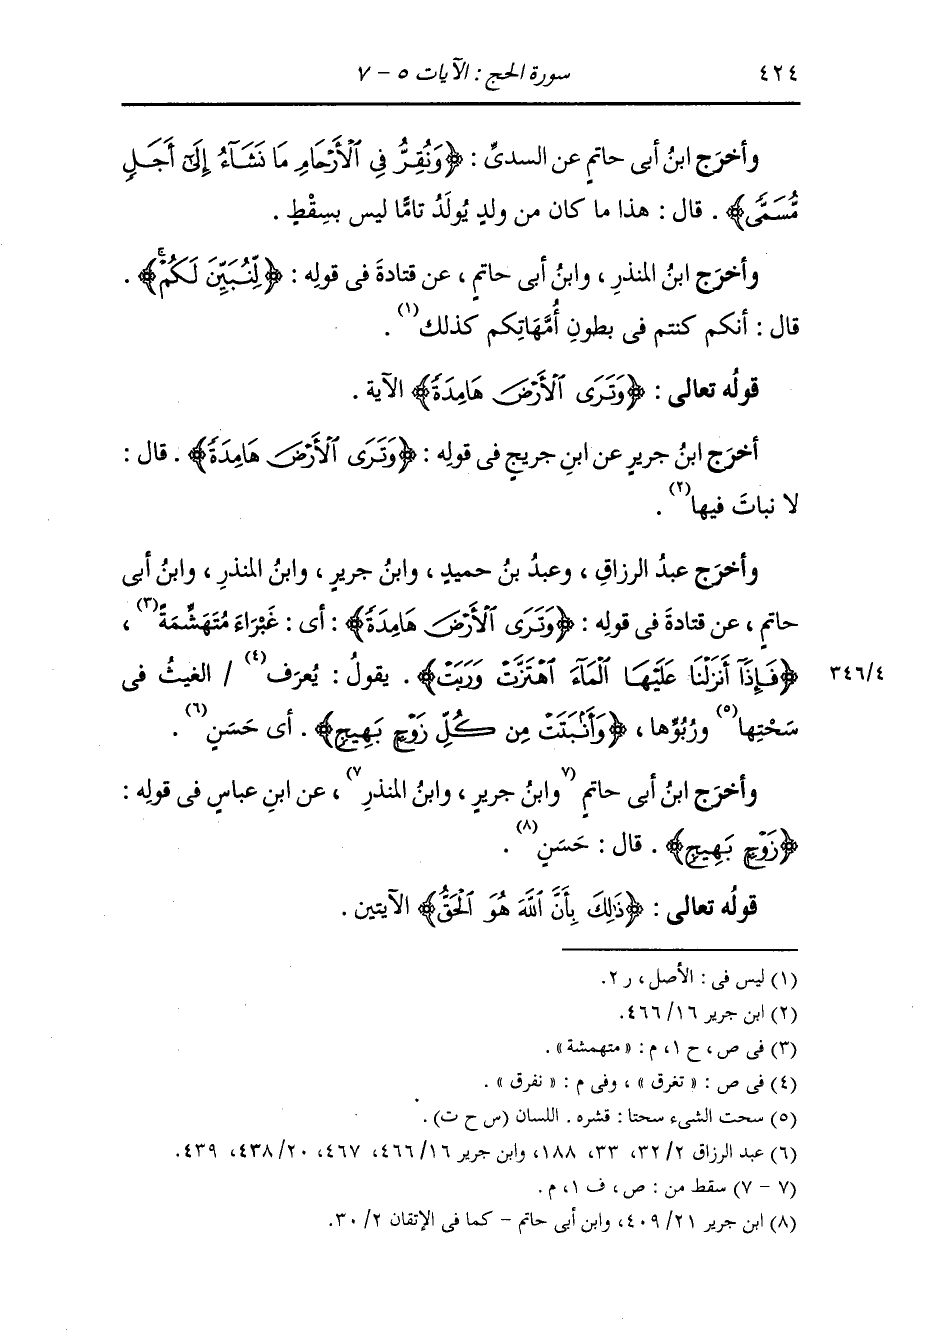 ٤٢٤ سورة الحج : الآيات ٥ - ٧
وأخرَج ابنُ أبى حاتمٍ عن السدىِّ : ﴿وَنُقِرُّ فِى ٱلْأَرْحَامِ مَا نَشَآءُ إِلَىٰٓ أَجَلٍ
مُّسَمًّى﴾ . قال : هذا ما كان من ولدٍ يُولَدُ تامًّا ليس بسِقْطٍ .
وأخرَج ابنُ المنذرِ ، وابنُ أبى حاتمٍ ، عن قتادةَ فى قولِه : ﴿لِّنُبَيِّنَ لَكُمْۚ﴾ .
قال : أنكم كنتم فى بطونِ أُمَّهَاتِكم كذلك(١) .
قولُه تعالى : ﴿وَتَرَى ٱلْأَرْضَ هَامِدَةً﴾ الآية .
أخرَج ابنُ جريرٍ عن ابنِ جريجٍ فى قولِه : ﴿وَتَرَى ٱلْأَرْضَ هَامِدَةً﴾ . قال :
لا نباتَ فيها(٢) .
وأخرَج عبدُ الرزاقِ ، وعبدُ بنُ حميدٍ ، وابنُ جريرٍ ، وابنُ المنذرِ ، وابنُ أبى
حاتمٍ ، عن قتادةَ فى قولِه : ﴿وَتَرَى ٱلْأَرْضَ هَامِدَةً﴾ : أى : غَبْرَاءَ مُتَهَشِّمَةً(٣) ،
﴿فَإِذَآ أَنزَلْنَا عَلَيْهَا ٱلْمَآءَ ٱهْتَزَّتْ وَرَبَتْ﴾ . يقولُ : يُعرَف(٤) / الغيثُ فى ٣٤٦/٤
سَحْتِها(٥) ورُبُوِّها ، ﴿وَأَنۢبَتَتْ مِن كُلِّ زَوْجٍۭ بَهِيجٍ﴾ . أى حَسَنٍ(٦) .
وأخرَج ابنُ أبى حاتمٍ (٧وابنُ جريرٍ ، وابنُ المنذرِ٧) ، عن ابنِ عباسٍ فى قولِه :
﴿زَوْجٍۭ بَهِيجٍ﴾ . قال : حَسَنٍ(٨) .
قولُه تعالى : ﴿ذَٰلِكَ بِأَنَّ ٱللَّهَ هُوَ ٱلْحَقُّ﴾ الآيتين .
(١) ليس فى : الأصل ، ر ٢.
(٢) ابن جرير ١٦/ ٤٦٦.
(٣) فى ص ، ح ١، م : « متهمشة » .
(٤) فى ص : « تغرق » ، وفى م : « نفرق » .
(٥) سحت الشىء سحتا : قشره . اللسان (س ح ت) .
(٦) عبد الرزاق ٢/ ٣٢، ٣٣، ١٨٨، وابن جرير ١٦/ ٤٦٦، ٤٦٧، ٢٠/ ٤٣٨، ٤٣٩.
(٧ - ٧) سقط من : ص ، ف ١، م .
(٨) ابن جرير ٢١/ ٤٠٩، وابن أبى حاتم - كما فى الإتقان ٢/ ٣٠.